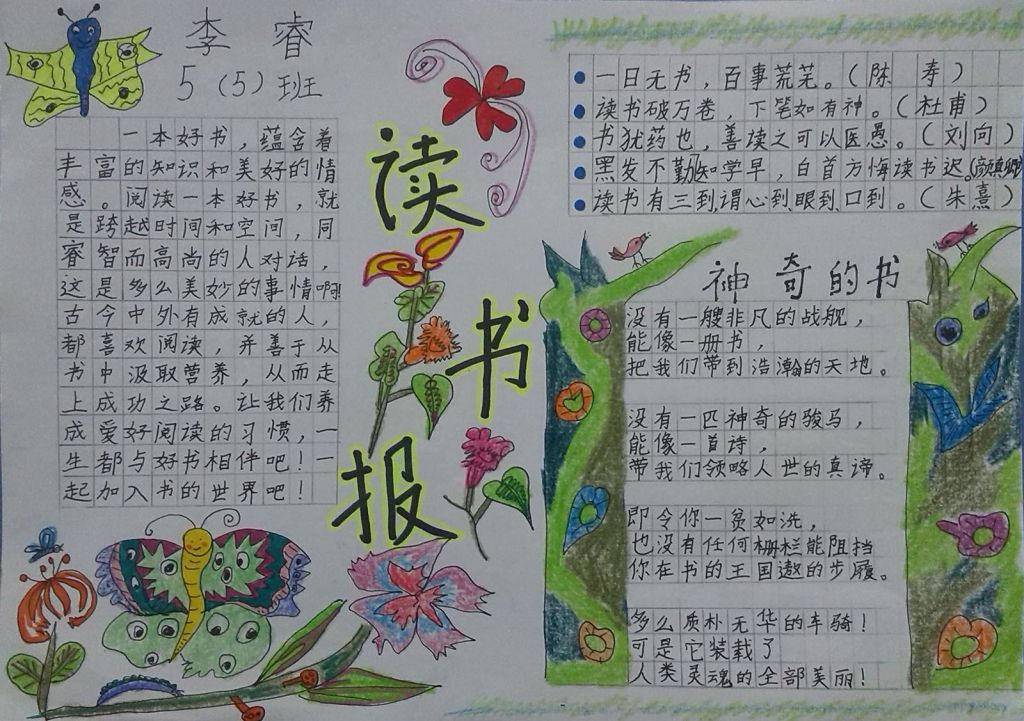 李睿
5（5）班
一本好书，蕴含着
丰富的知识和美好的情
感。阅读一本好书，就
是跨越时间和空间，同
睿智而高尚的人对话，
这是多么美妙的事情啊!
古今中外有成就的人，
都喜欢阅读，并善于从
书中汲取营养，从而走
上成功之路。让我们养
成爱好阅读的习惯，一
生都与好书相伴吧！一
起加入书的世界吧！
读
书
报
一日无书，百事荒芜。（陈寿）
读书破万卷，下笔如有神。（杜甫）
书犹药也，善读之可以医愚。（刘向）
黑发不勤知学早，白首方悔读书迟。(颜真卿)
读书有三到，谓心到，眼到，口到。（朱熹）
神奇的书
没有一艘非凡的战舰，
能像一册书，
把我们带到浩瀚的天地。
没有一匹神奇的骏马，
能像一首诗，
带我们领略人世的真谛。
即令你一贫如洗，
也没有任何栅栏能阻挡
你在书的王国遨的步履。
多么质朴无华的车骑！
可是它装载了
人类灵魂的全部美丽！